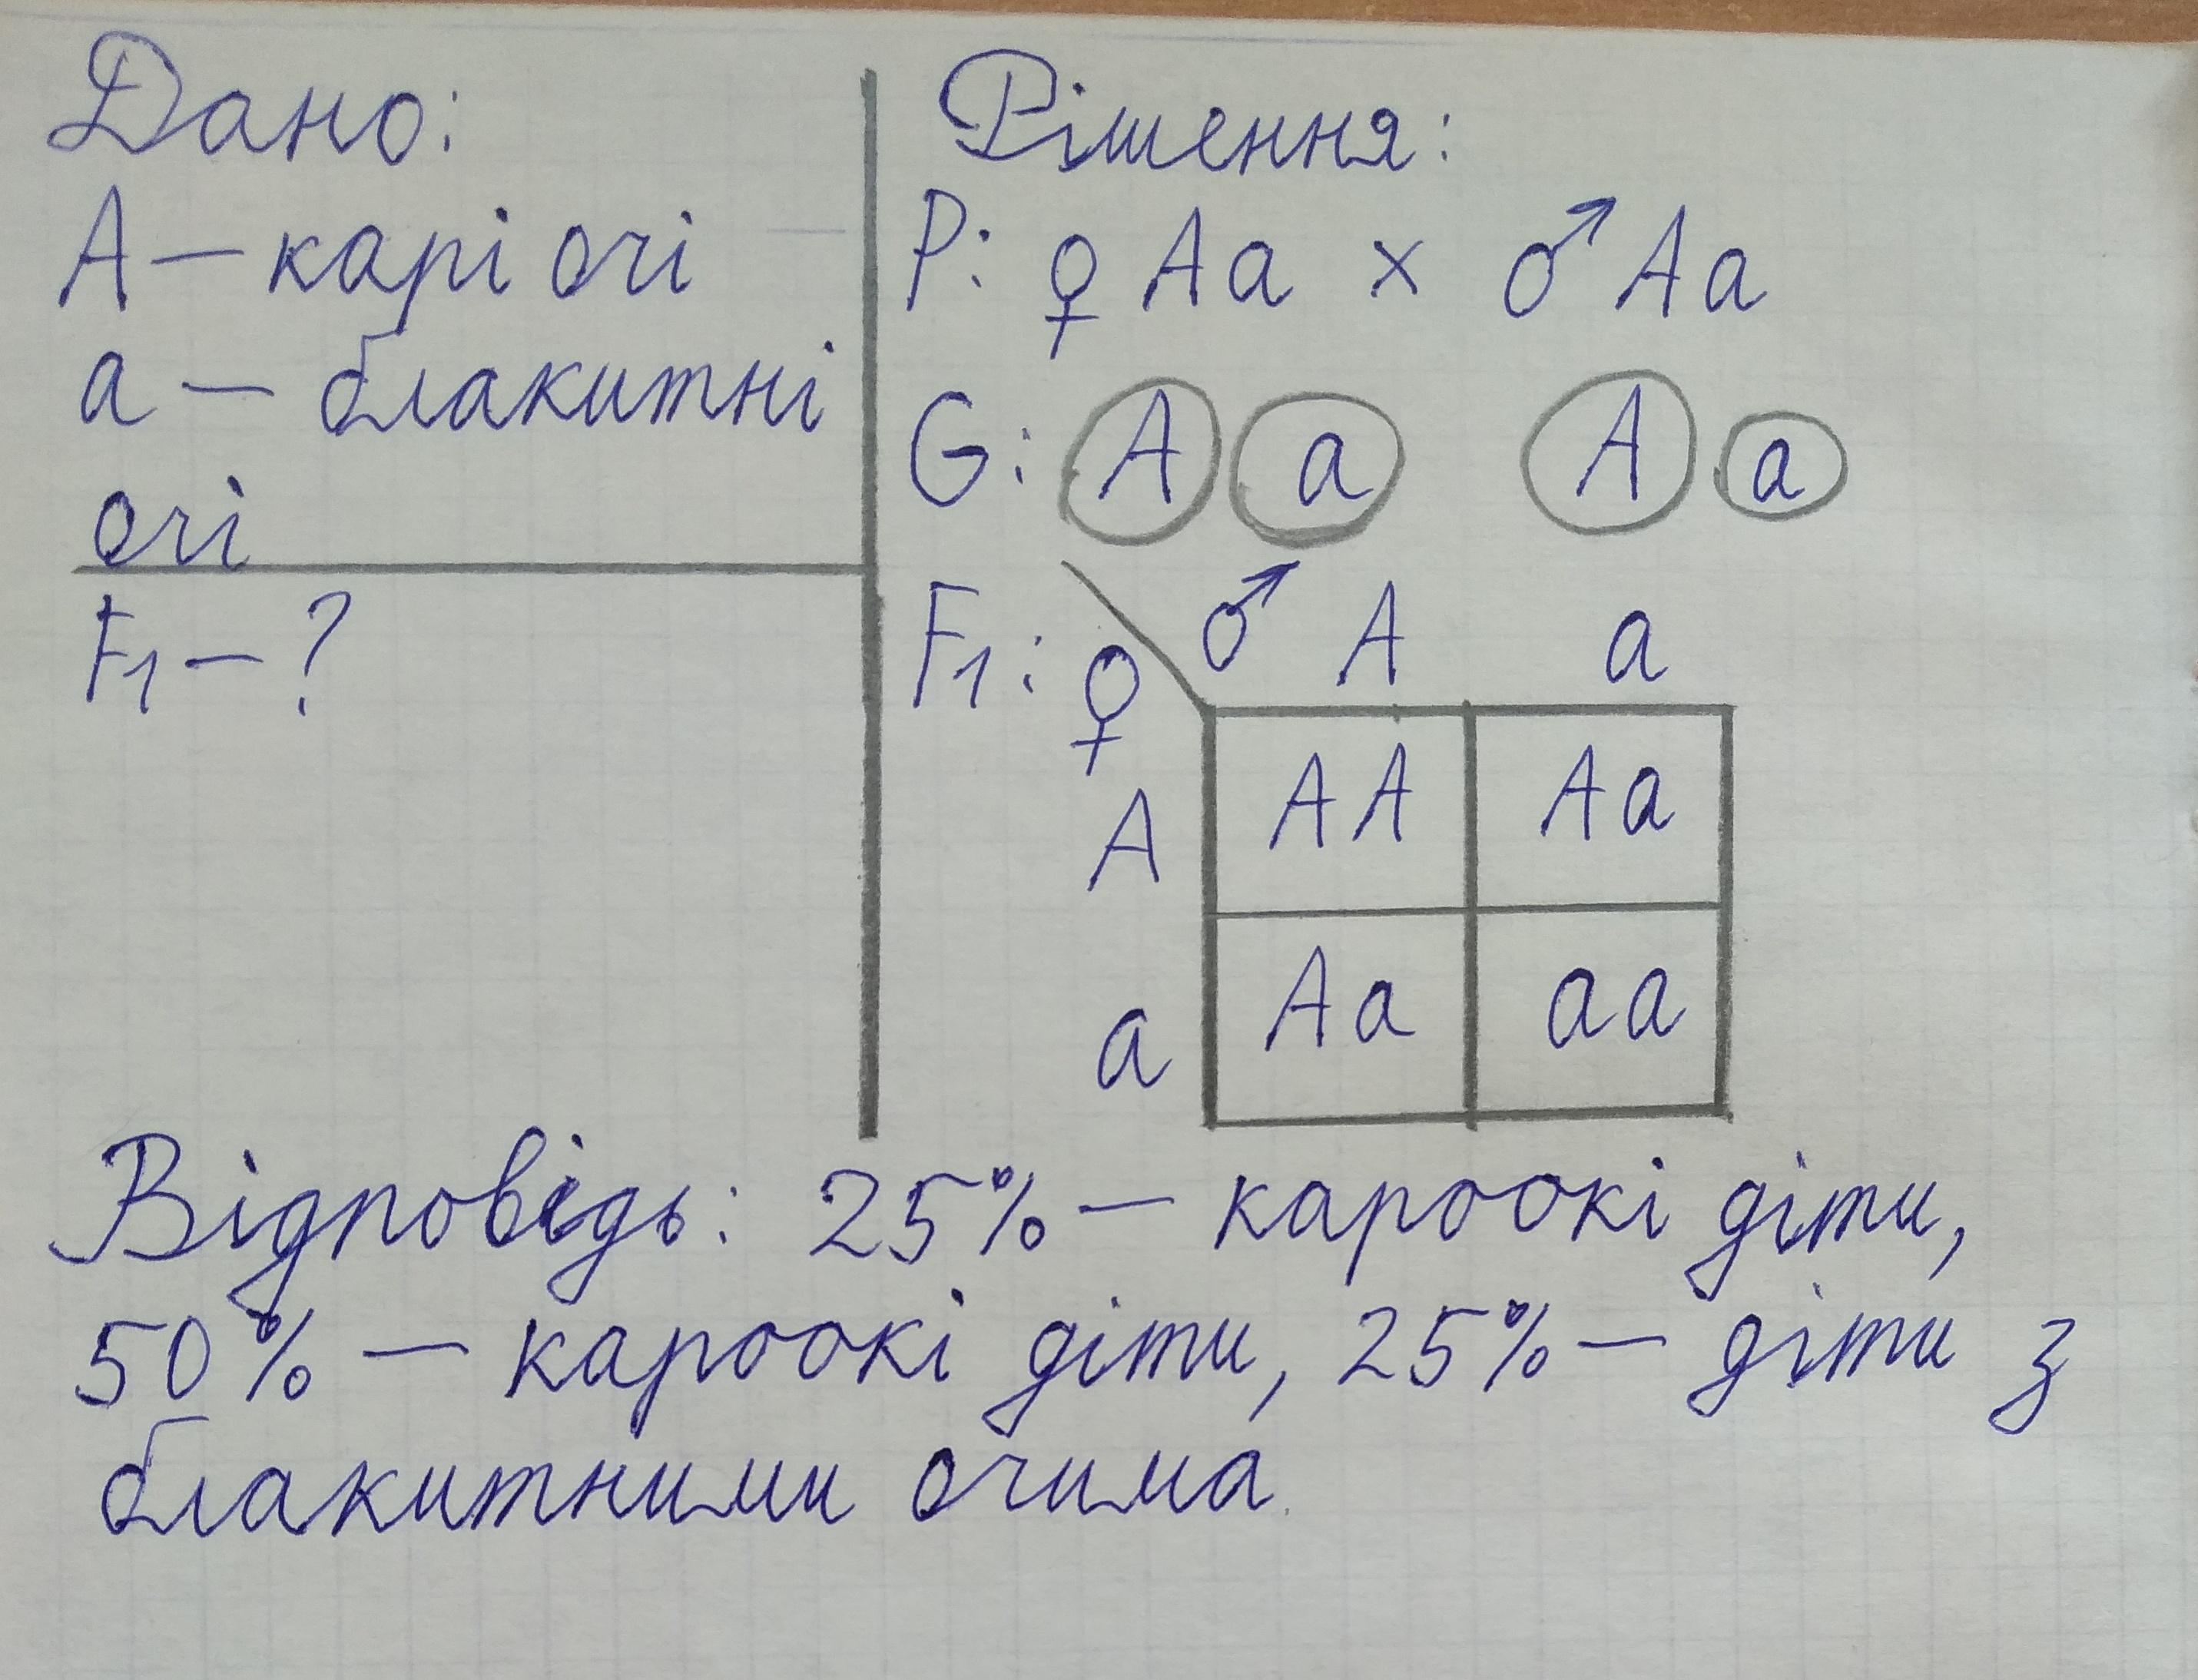 Дано:
А – карі очі
а – блакитні
очі
F₁ – ?
Рішення:
P: ♀ Aa × ♂ Aa
G: A a A a
F₁: ♀ ♂ A a
A AA Aa
a Aa aa
Відповідь: 25% – кароокі діти,
50% – кароокі діти, 25% – діти з
блакитними очима.